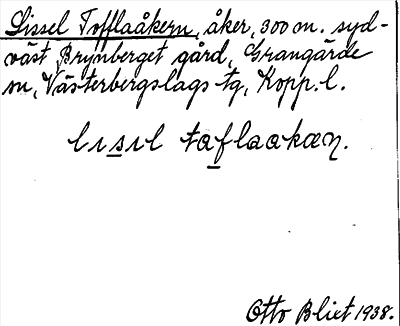 Lissel Tofflaåkern, åker, 300 m. syd-
väst Brynberget gård, Grangärde
sn, Västerbergslags tg, Kopp. l.
lısıl taflaakæɳ.
Otto Blixt 1938.